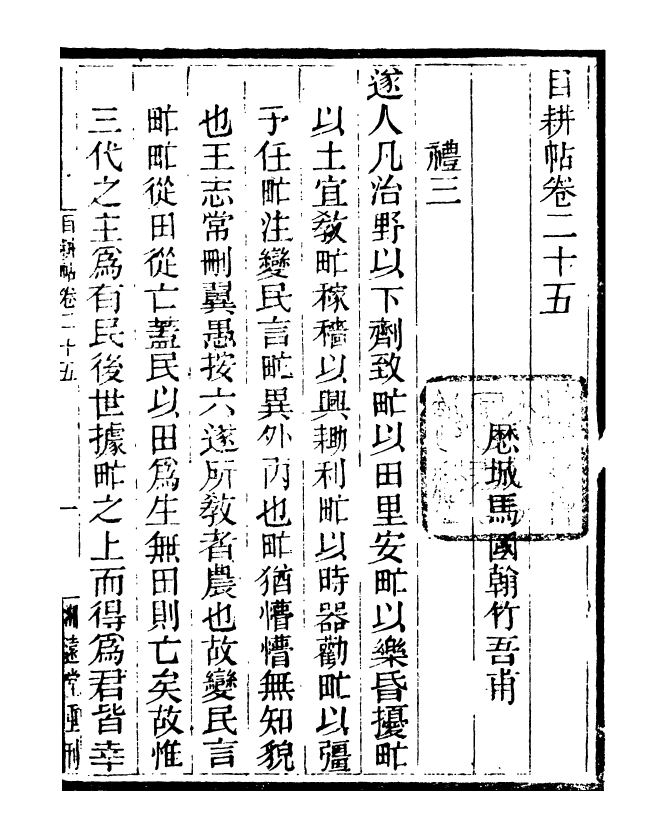 目耕帖卷二十五
歷城馬國翰竹吾甫
禮三
遂人凡治野以下劑致甿以田里安甿以樂昏擾甿
以土宜敎甿稼穡以興耡利甿以時器勸甿以彊
予任甿注變民言甿異外內也甿猶懵懵無知貌
也王志常刪翼愚按六遂所敎者農也故變民言
甿甿從田從亡蓋民以田爲生無田則亡矣故惟
三代之主爲有民後世據甿之上而得爲君皆幸
目耕帖卷二十五
一
湘遠堂重刊